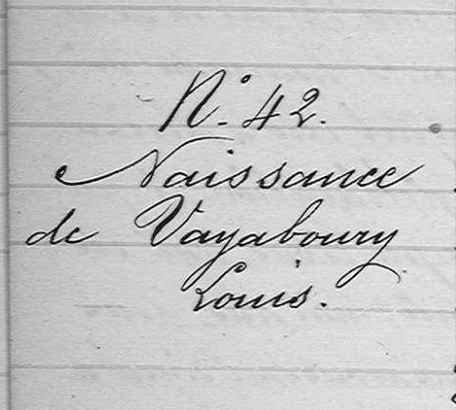 N° 42.
Naissance
de Vayaboury
Louis.